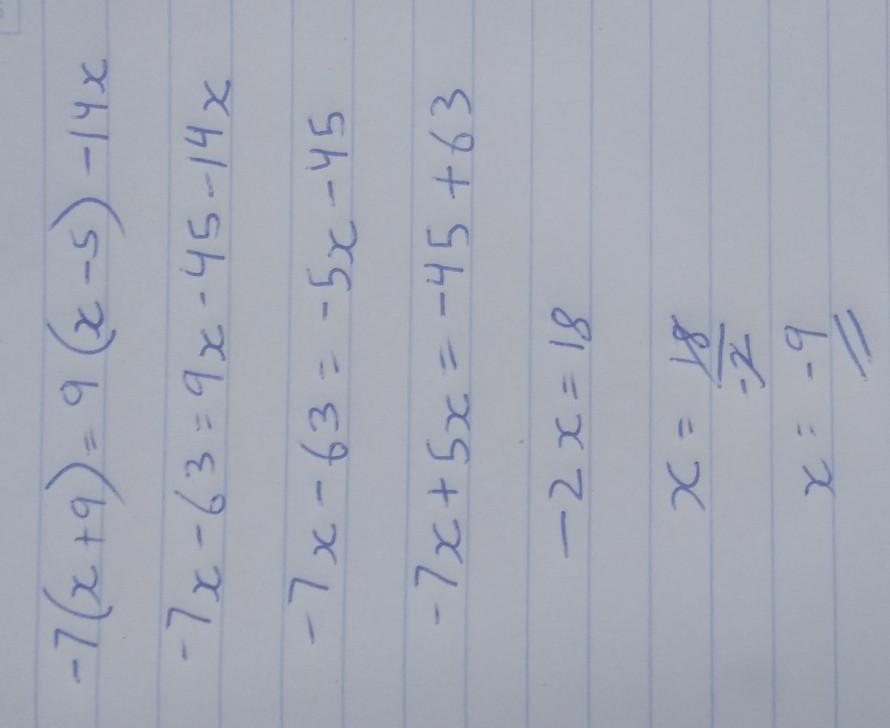 -7(x+9)=9(x-5)-14x
-7x-63=9x-45-14x
-7x-63=-5x-45
-7x+5x=-45+63
-2x=18
x=18/-2
x=-9